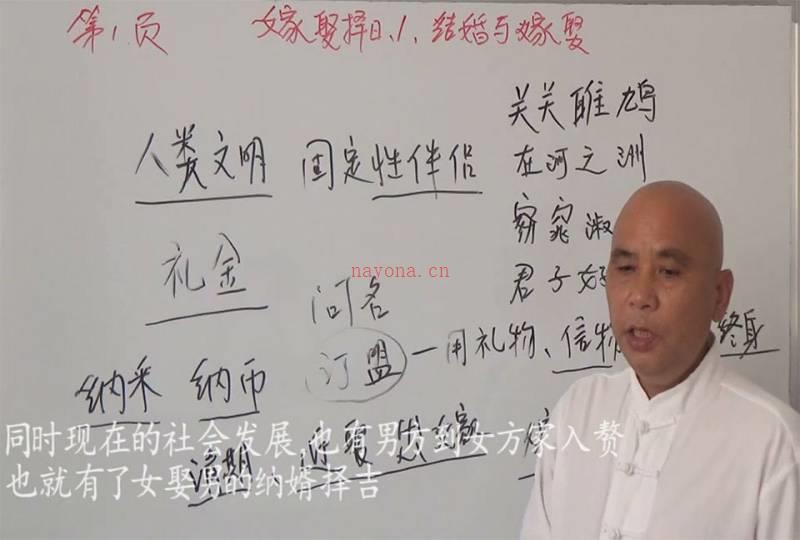 第1页 嫁娶择日、1、结婚与嫁娶
关关雎鸠
在河之洲
窈窕淑
君子好
人类文明 固定性伴侣
礼金 问名
nayona.cn
订盟—用礼物、信物 终身
纳采 纳币
请期、迎娶
同时现在的社会发展,也有男方到女方家入赘
也就有了女娶男的纳婿择吉